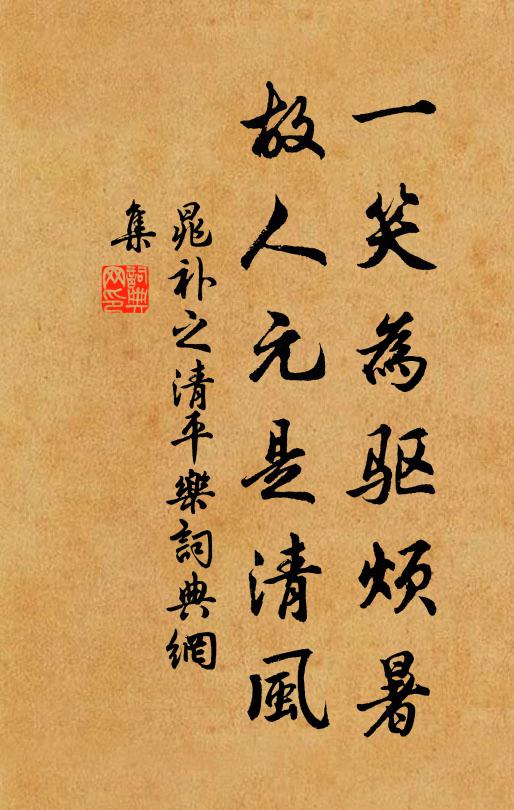 一笑為驱烦暑
故人元是清風
晁补之清平樂詞典網
集
詞典
网印